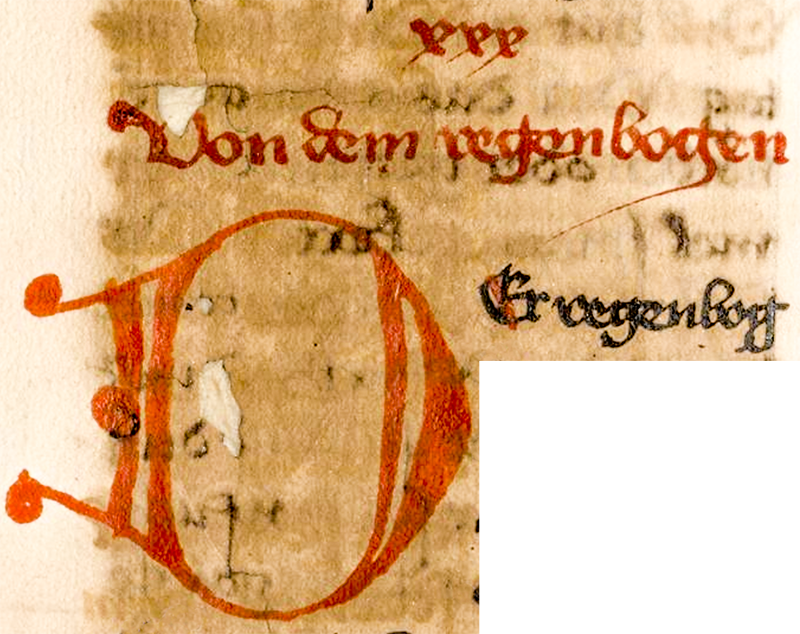 xxx
Von dem regenbogen
DEr regenbog